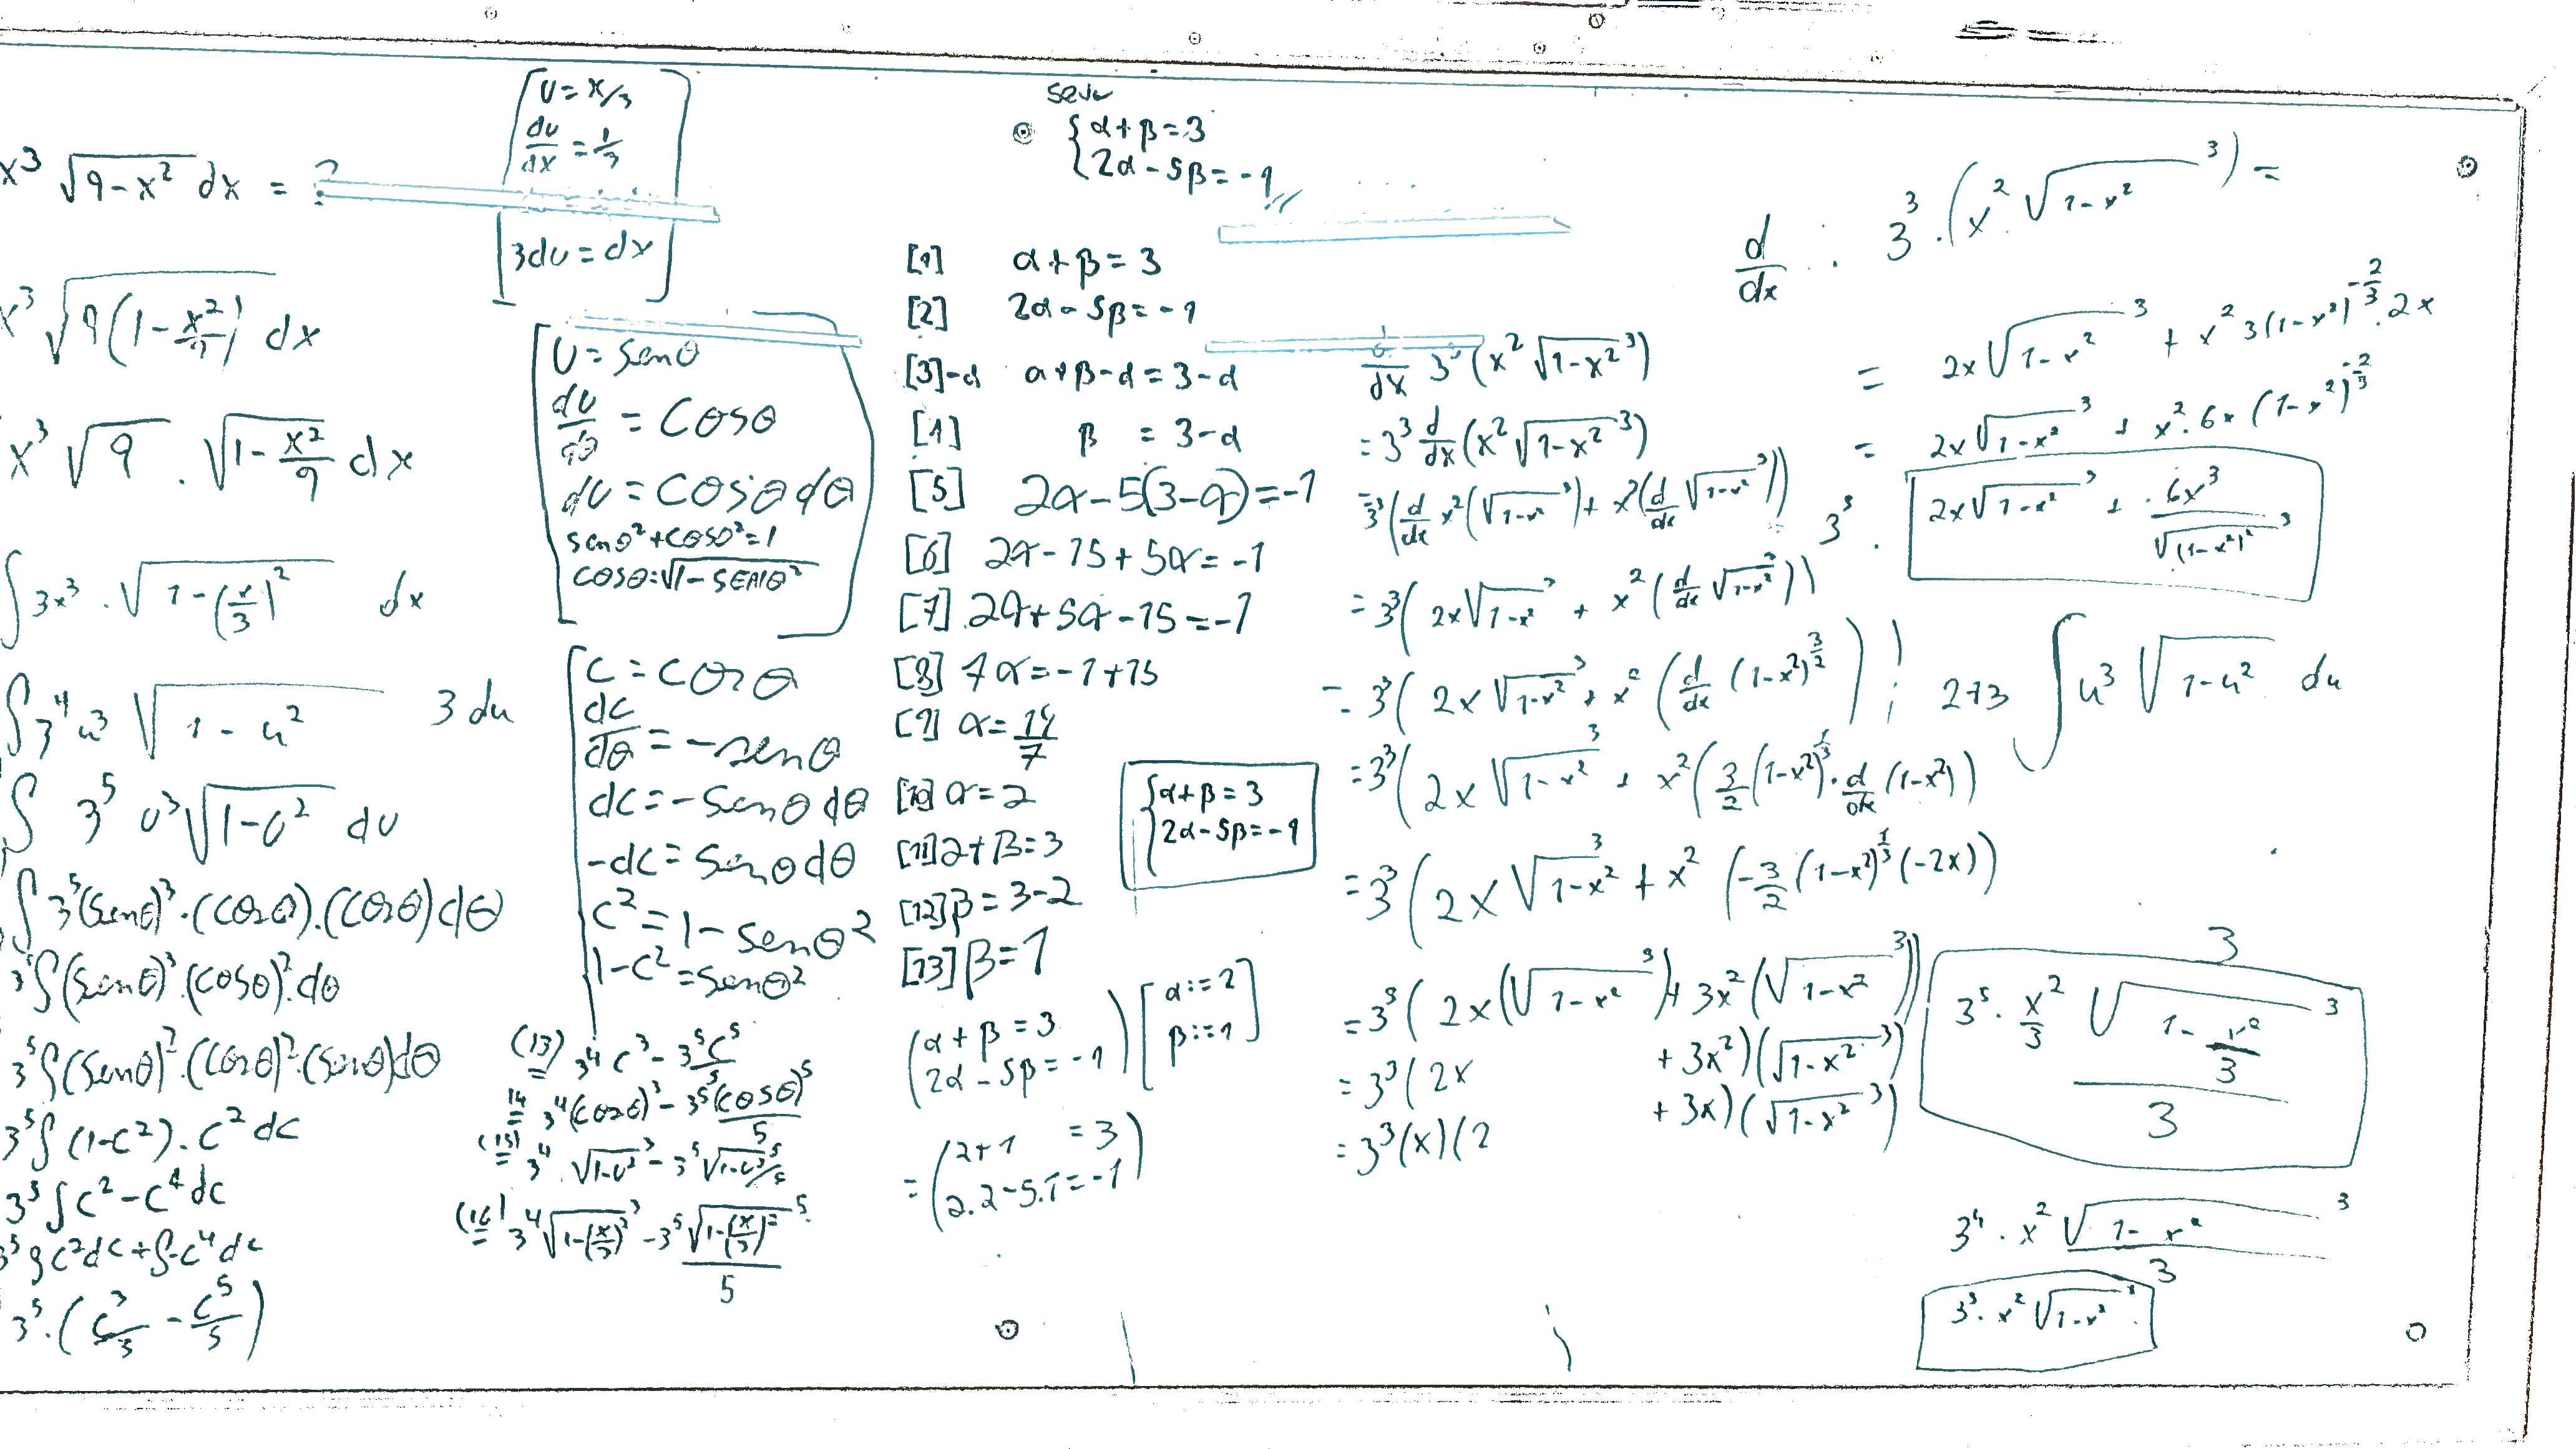 x³ √(9-x²) dx = ?
x³ √(9(1-x²/9)) dx
x³ √9 . √(1-x²/9) dx
∫ 3x³ . √(1-(x/3)²) dx
∫ 3⁴ u³ √(1-u²) 3 du
∫ 3⁵ u³ √(1-u²) du
∫ 3⁵(senθ)³.(cosθ).(cosθ)dθ
3⁵∫(senθ)³.(cosθ)².dθ
3⁵∫(senθ)².(cosθ)².(senθ)dθ
3⁵∫(1-c²).c² dc
3⁵∫c²-c⁴dc
3⁵∫c²dc+∫-c⁴dc
3⁵.(c³/3 - c⁵/5)
[u = x/3
du/dx = 1/3
3du = dx]
[u = senθ
du/dθ = cosθ
du = cosθdθ
senθ²+cosθ²=1
cosθ=√(1-senθ²)]
[c = cosθ
dc/dθ = -senθ
dc = -senθdθ
-dc = senθdθ
c² = 1-senθ²
1-c² = senθ²
(13)= 3⁴c³ - 3⁵c⁵/5
14= 3⁴(cosθ)³ - 3⁵(cosθ)⁵/5
(15)= 3⁴.√(1-u²)³ - 3⁵√(1-u²)⁵/5
(16)= 3⁴√(1-(x/3)²)³ - 3⁵√(1-(x/3)²)⁵/5
{α+β=3
2α-5β=-1
[1] α+β=3
[2] 2α-5β=-1
[3]-α α+β-α=3-α
[4] β = 3-α
[5] 2α-5(3-α)=-1
[6] 2α-15+5α=-1
[7] 2α+5α-15=-1
[8] 7α=-1+15
[9] α=14/7
[10] α=2
[11] 2+β=3
[12] β=3-2
[13] β=1
{α+β=3
2α-5β=-1
(α+β=3
2α-5β=-1) [α:=2
β:=1]
=(2+1 =3
2.2-5.1=-1)
d/dx 3³(x²√(1-x²)³)
=3³ d/dx(x²√(1-x²)³)
=3³(d/dx x²(√(1-x²)³)+x²(d/dx √(1-x²)³))
=3³(2x√(1-x²)³ + x²(d/dx √(1-x²)³))
=3³(2x√(1-x²)³ + x²(d/dx (1-x²)^(3/2)))
=3³(2x√(1-x²)³ + x²(3/2(1-x²)^(1/3).d/dx(1-x²)))
=3³(2x√(1-x²)³ + x²(-3/2(1-x²)^(1/3)(-2x)))
=3³(2x(√(1-x²)³)+3x²(√(1-x²)³))
=3³(2x +3x²)(√(1-x²)³)
=3³(x)(2 +3x)(√(1-x²)³)
d/dx : 3³.(x²√(1-x²)³) =
= 2x√(1-x²)³ + x²3(1-x²)^(-2/3).2x
= 2x√(1-x²)³ + x².6x(1-x²)^(-2/3)
3³. 2x√(1-x²)³ + 6x³/√(1-x²)²³
273 ∫u³ √(1-u²) du
3
3⁵.x²/3 √(1-x²/3)³
3
3⁴.x²√(1-x²)³
3
3³.x²√(1-x²)³